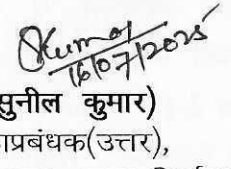 SKumar
16/07/2025
सुनील कुमार)
प्रबंधक(उत्तर),